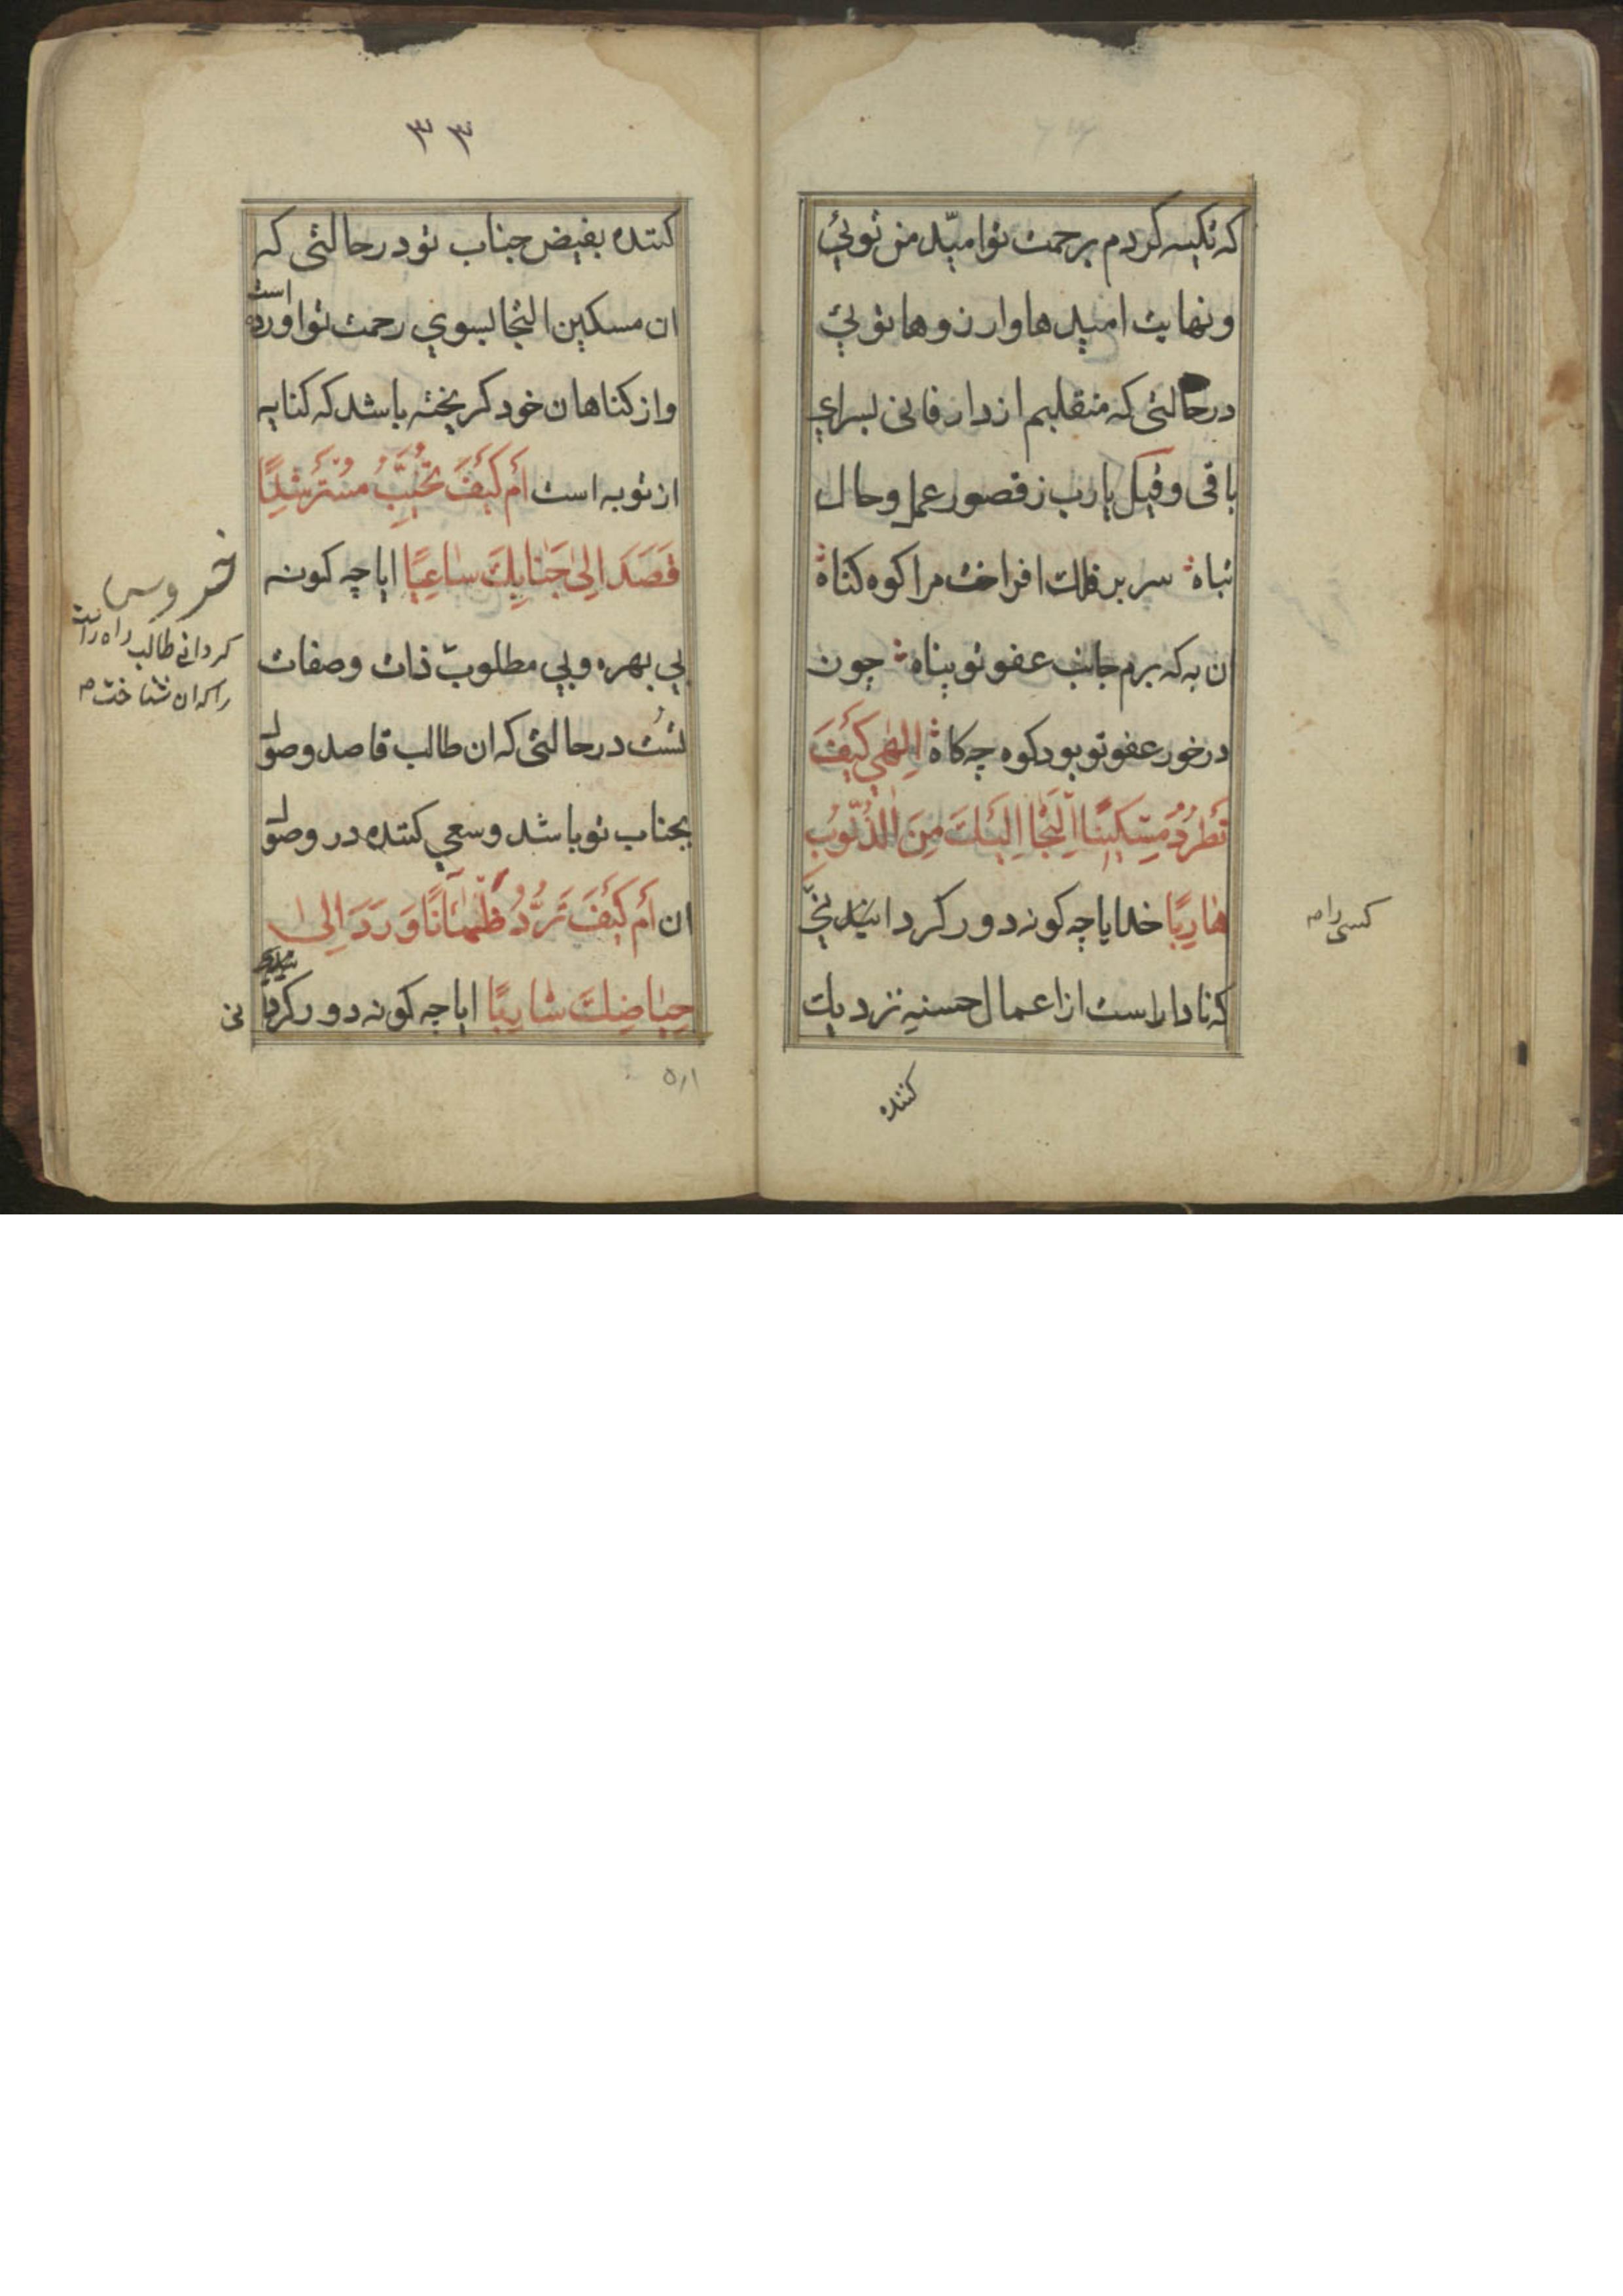 که تکیه کردم برحمت تو امیّد من توئي
و نهایت امیدها و ارزوها توئي
درحالتی که منقلبم از دار فانی بسراي
باقی و قیل یارب ز قصور عمل و حال
تباه سر بر فلک افراخت مرا کوه کناه
ان به که برم جانب عفو تو پناه چون
درخور عفو تو بود کوه چه کاه اِلٰهي كَيْفَ
تَطْرُدُ مِسْكِينًا اِلْتَجَأَ اِلَيْكَ مِنَ الذُّنُوبِ
هٰارِبًا خدایا چه کونه دور کردانیدنی
که نادار است از اعمال حسنیه نزدیک
کسی را
کننده
۳۳
کننده بفیض جناب تو درحالتی که
ان مسکین التجا بسوي رحمت تو اورده
است
و از کناهان خود کریخته باشد که کنایه
از توبه است اَمْ كَيْفَ تُخَيِّبُ مُسْتَرْشِدًا
قَصَدَ اِلىٰ جَنٰابِكَ سٰاعِيًا ایا چه کونه
بي بهره و بي مطلوب ذات و صفات
تست درحالتی که ان طالب قاصد وصول
بجناب تو باشد و سعي کننده در وصول
ان اَمْ كَيْفَ تَرُدُّ ظَمْاٰنًا وَرَدَ اِلىٰ
حِيٰاضِكَ شٰارِبًا ایا چه کونه دور کردا
نی
خروس
کردانے طالب راه راست
را که ان شناخت
۵۱